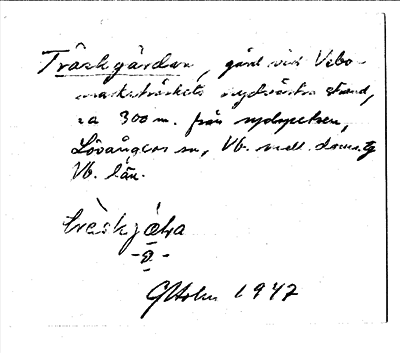 Träskgärdan, gård vid Vebo-
marksträskets sydvästra strand,
ca 300 m. från sydspetsen,
Lövångers sn, Vb. mell. doms.
Vb. län.
trèskjæḷa
G Holm 1947